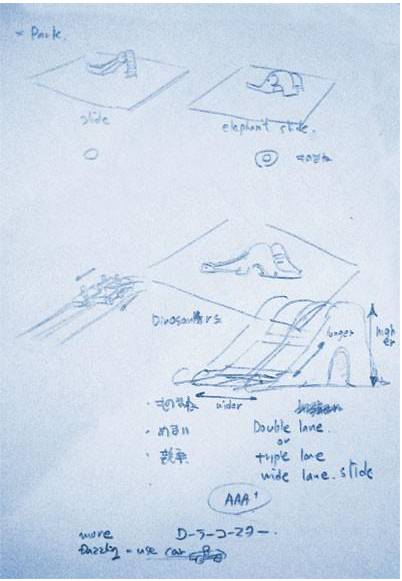 * Park.
slide
elephant slide.
ものまね
Dinosaurs
longer
high
er
wider
・ものまね
・めまい
・競争
Double lane.
or
triple lane
wide lane. slide
AAA+
ローラーコースター.
more
Dazzling = use car